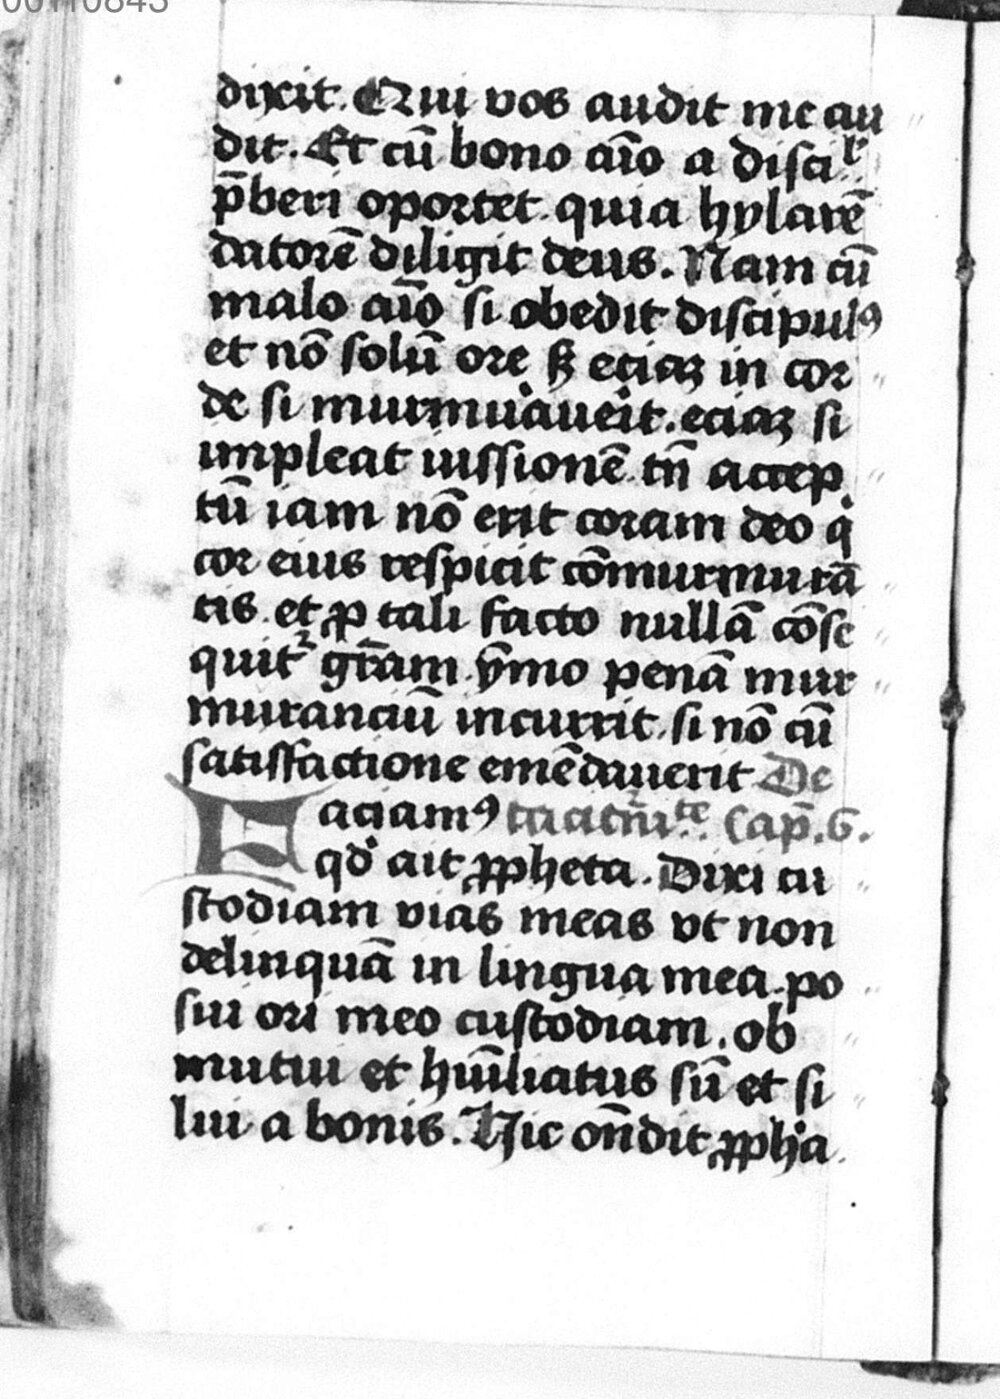 00110843
dixit. Qui vos audit me au
dit. Et cū bono aīo a disciꝉ
p̄beri oportet quia hylarē
datorē diligit deus. Nam cū
malo aīo si obedit discipulꝰ
et nō solū ore sꝫ eciaꝫ in cor
de si murmuauerit. eciaꝫ si
impleat iussionē tn̄ accep
tū iam nō erit coram deo q̇
cor eius respicit cōmurmurā
tis et ꝓ tali facto nullā cōse
quitᷣ grām ymo penā mur
muranciū incurrit. si nō cū
satisfactione emēdauerit De
Faciamꝰ taciturnitᵗᵉ. Cap̄. 6.
qd̓ ait ꝓpheta. Dixi cu
stodiam vias meas vt non
delinquā in lingua mea. po
sui ori meo custodiam. ob
mutui et hūiliatus sū et si
lui a bonis. Hic on̄dit ꝓph̓a.